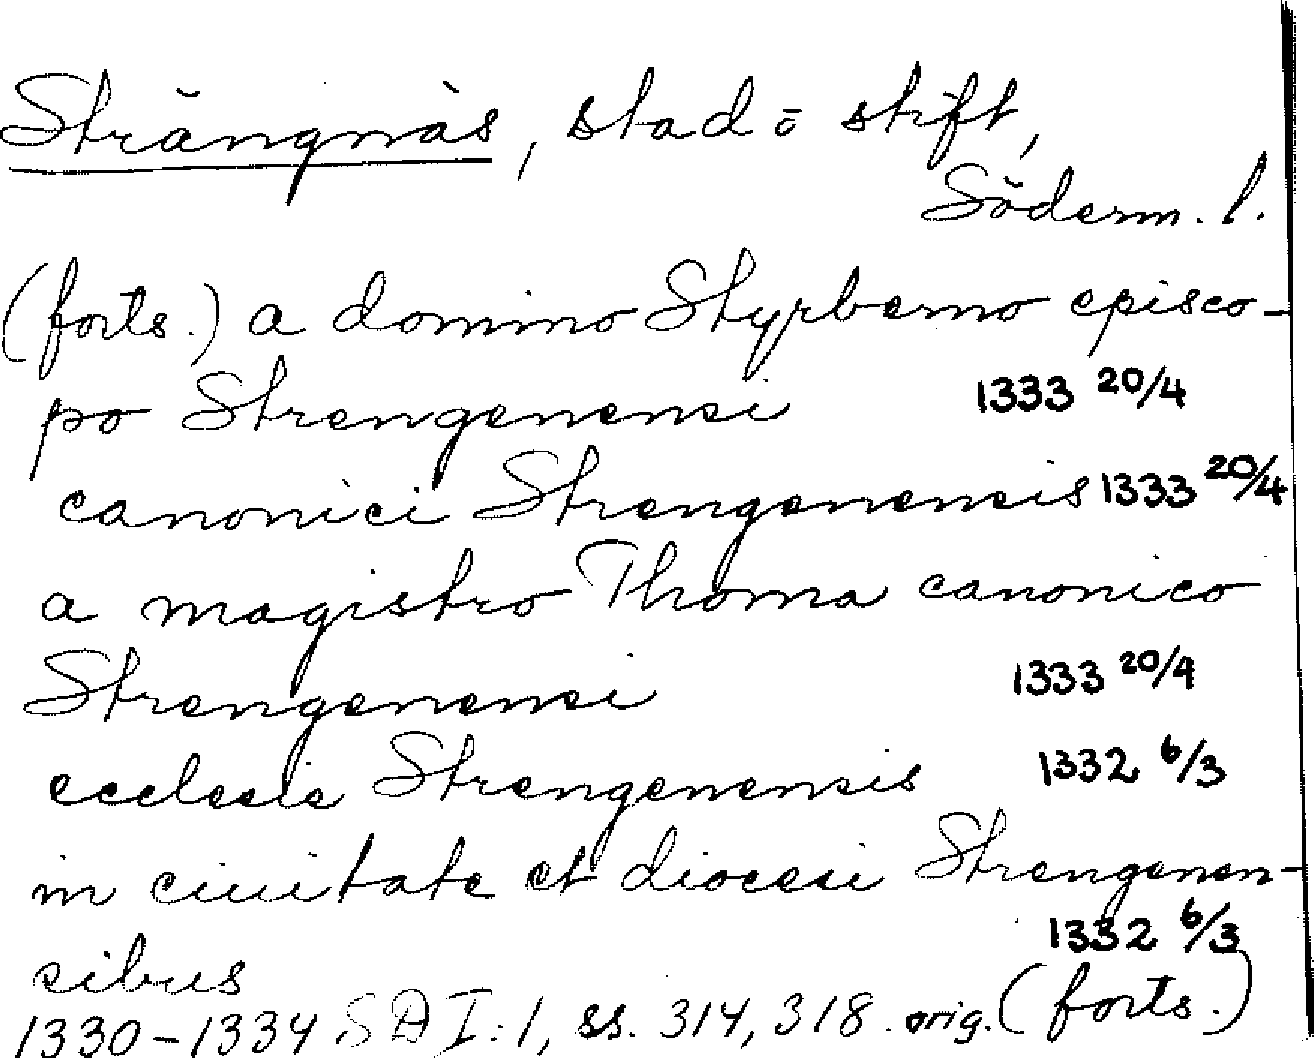 Strängnäs, stad o stift,
Söderm. l.
(forts.) a domino Styrberno episco-
po Strengenensi 1333 20/4
canonici Strengenensis 1333 20/4
a magistro Thoma canonico
Strengenensi 1333 20/4
ecclesie Strengenensis 1332 6/3
in ciuitate et diocesi Strengenen-
sibus 1332 6/3
1330-1334 SD I:1, ss. 314, 318. orig. (forts.)